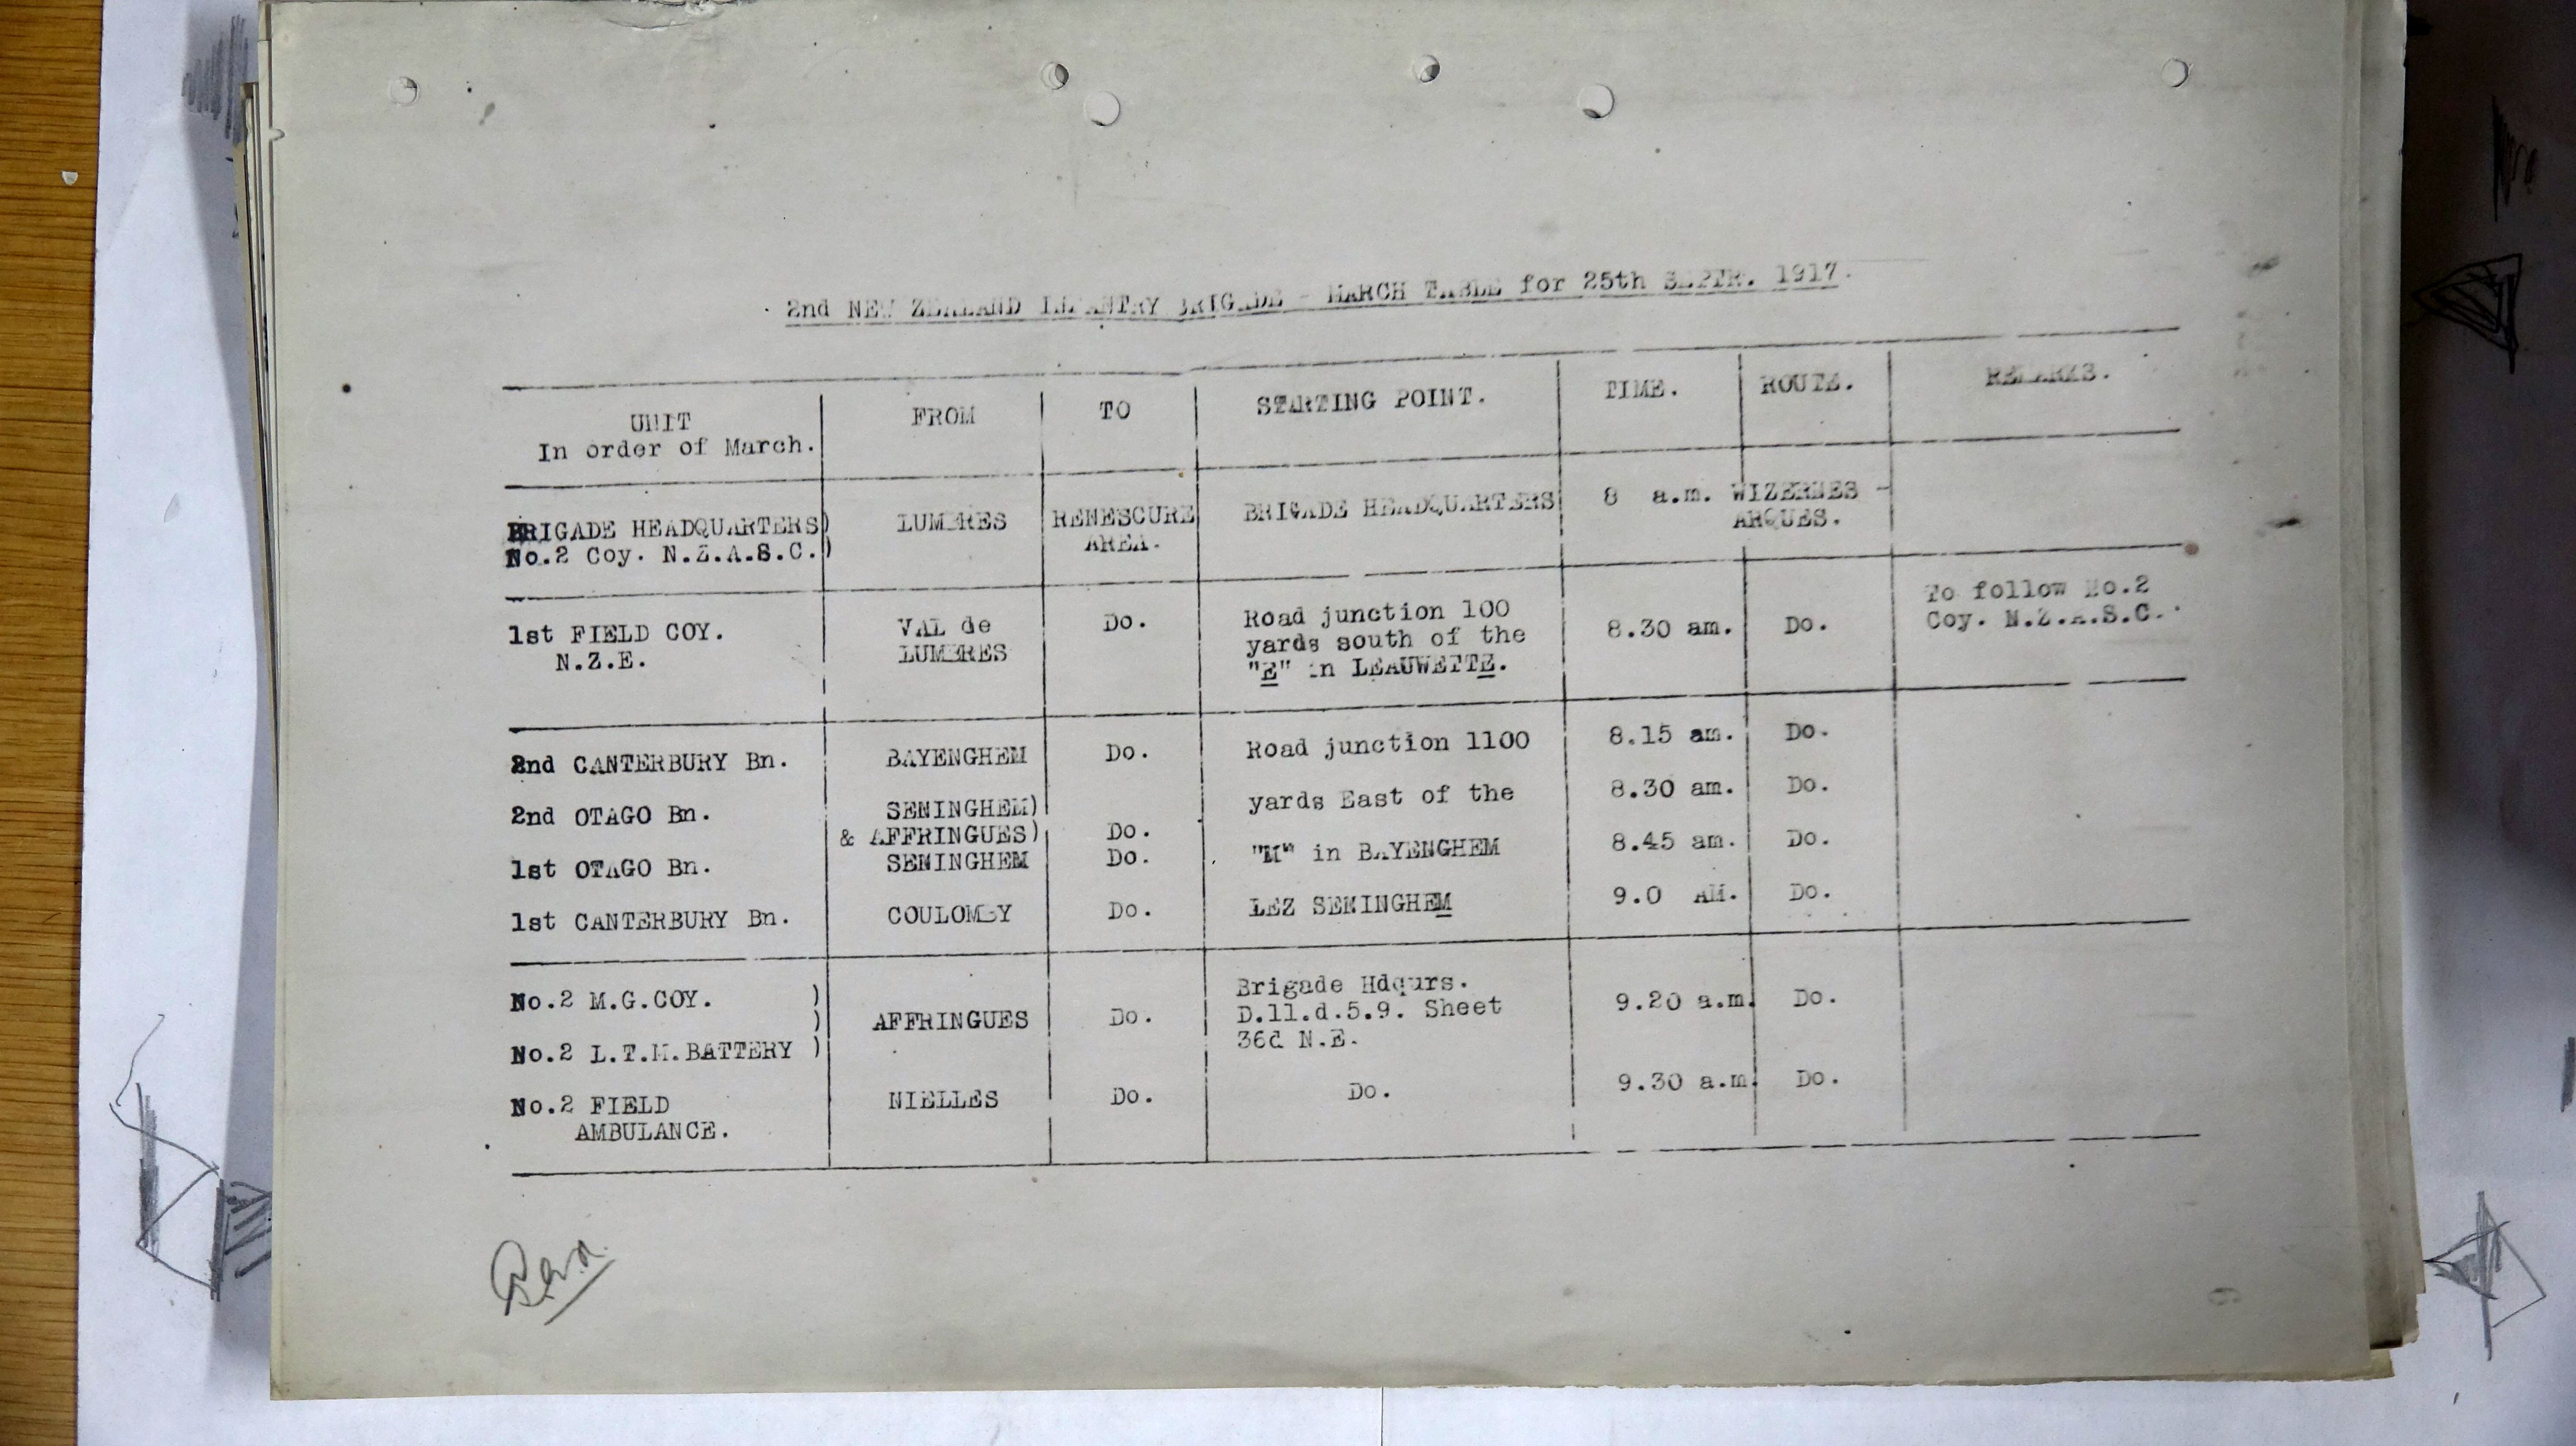 2nd NEW ZEALAND INFANTRY BRIGADE - MARCH TABLE for 25th SEPTR. 1917.
UNIT In order of March. FROM TO STARTING POINT. TIME. ROUTE. REMARKS.
BRIGADE HEADQUARTERS) LUMBRES RENESCURE BRIGADE HEADQUARTERS 8 a.m. WIZERNES -
No.2 Coy. N.Z.A.S.C.) AREA. ARQUES.
1st FIELD COY. VAL de Do. Road junction 100 8.30 am. Do. To follow No.2
N.Z.E. LUMBRES yards south of the Coy. N.Z.A.S.C.
"E" in LEAUWETTE.
2nd CANTERBURY Bn. BAYENGHEM Do. Road junction 1100 8.15 am. Do.
2nd OTAGO Bn. SENINGHEM) yards East of the 8.30 am. Do.
& AFFRINGUES) Do.
1st OTAGO Bn. SENINGHEM Do. "M" in BAYENGHEM 8.45 am. Do.
1st CANTERBURY Bn. COULOMBY Do. LEZ SENINGHEM 9.0 AM. Do.
No.2 M.G.COY. ) Brigade Hdqurs.
) AFFRINGUES Do. D.11.d.5.9. Sheet 9.20 a.m. Do.
No.2 L.T.M.BATTERY ) 36d N.E.
No.2 FIELD NIELLES Do. Do. 9.30 a.m. Do.
AMBULANCE.